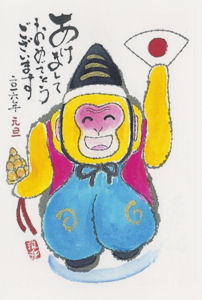 あけまして
おめでとう
ございます
二〇一六年 元旦